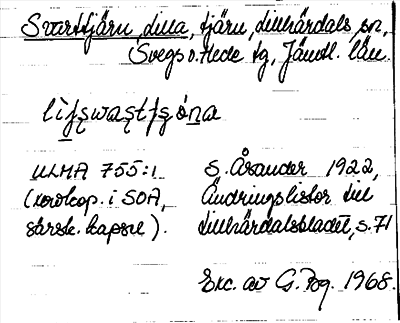 Svarttjärn, lilla, tjärn, Lillhärdals sn,
Svegs o. Hede tg, Jämtl. län.
ULMA 755:1 S. Åsander 1922,
(xerokop. i SOA, Ändringslistor till
särsk. kapsel). Lillhärdalsbladet, s. 71
Exc. av G. Pg. 1968.